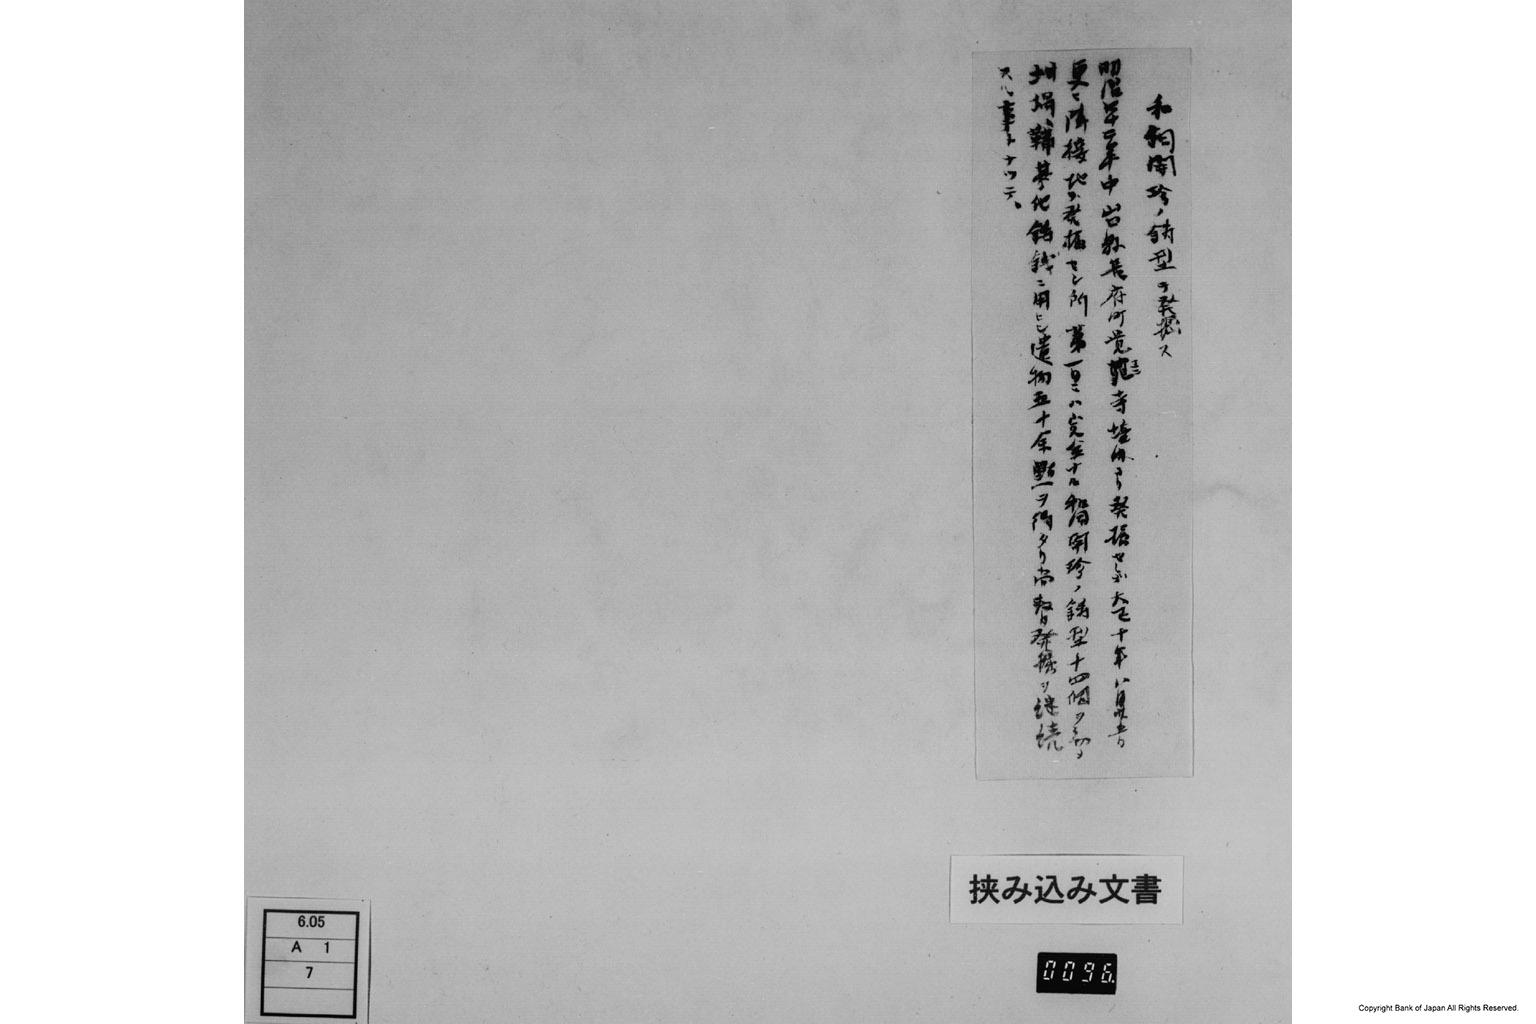 和銅開珍ノ鋳型ヲ発掘ス
明治四十四年中山口県長府町覚苑寺境内ヨリ発掘セシガ大正十年八月廿五日
更ニ隣接地ヲ発掘セシ所第一日ニハ完全ナル和同開珍ノ鋳型十四個ヲ初メ
坩堝、鞴、其他鋳銭ニ用ヒシ遺物五十余點ヲ得タリ尚数日発掘ヲ継続
スル事トナツテ。
挟み込み文書
6.05
A 1
7
0096
Copyright Bank of Japan All Rights Reserved.